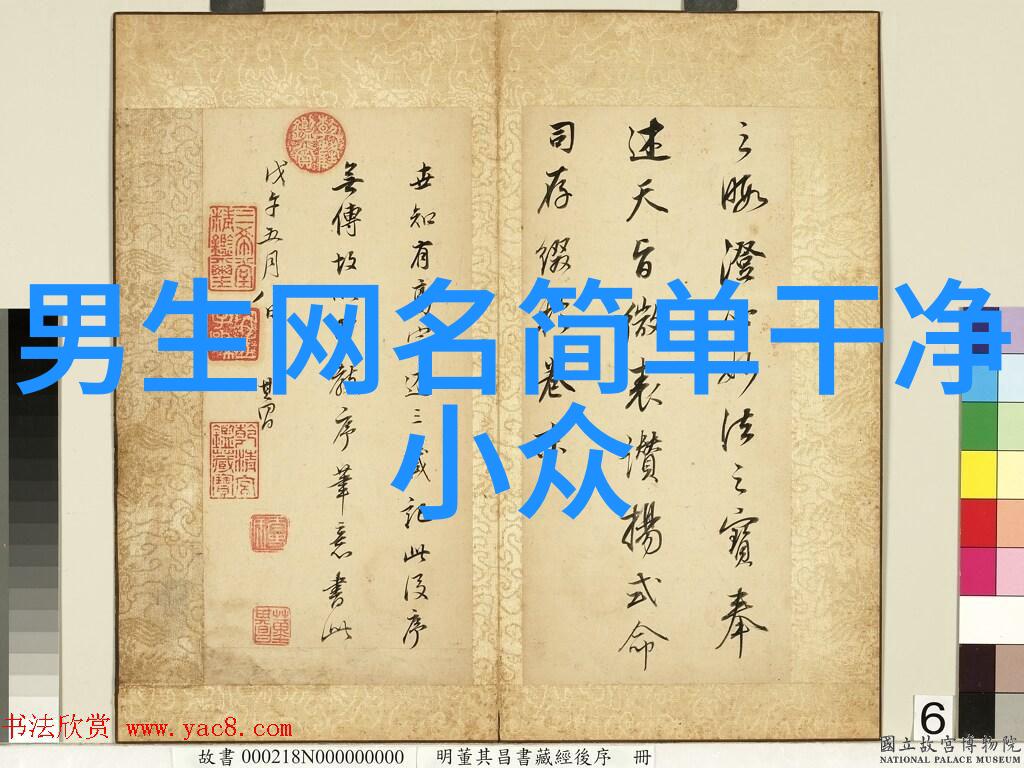 男生网名简单干净
小众
之暇澄妙法之寶奉
述天旨微表讚揚式命
司存綴
世知有三藏記此後序
無傳故序筆意書此
戊午五月八日 其昌
三希堂精鑑璽
書法欣赏 www.yac8.com
6
故書 000218N000000000 明董其昌書藏經後序 冊
國立故宮博物院
NATIONAL PALACE MUSEUM